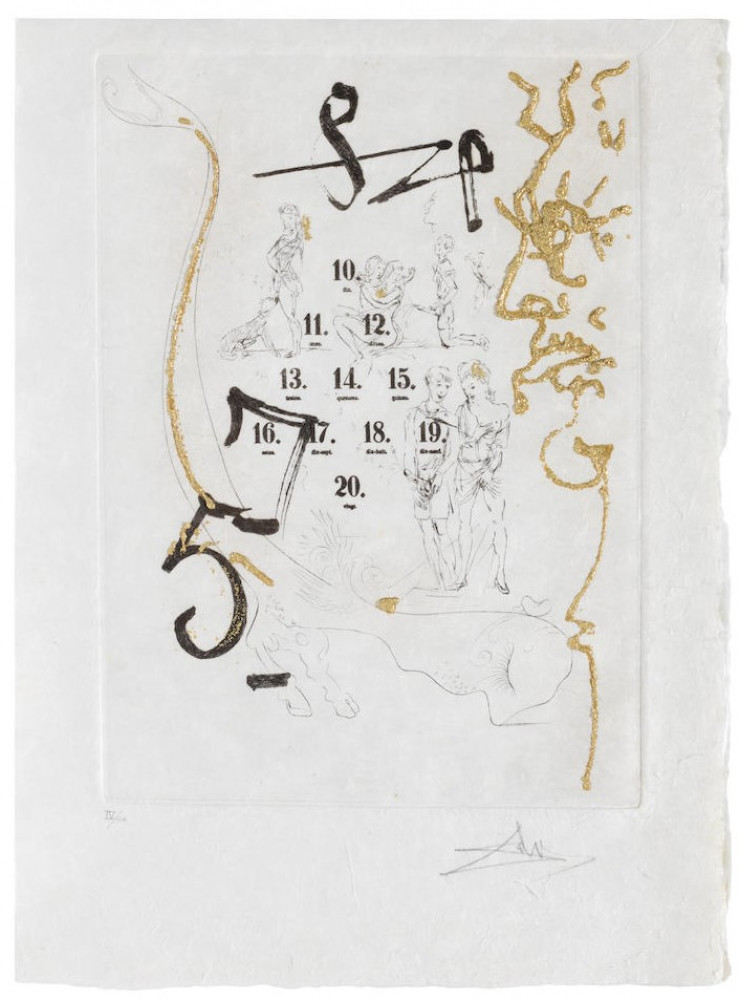 10.
dix.
11. 12.
onze. douze.
13. 14. 15.
treize. quatorze. quinze.
7
16. 17. 18. 19.
seize. dix-sept. dix-huit. dix-neuf.
20.
vingt.
5